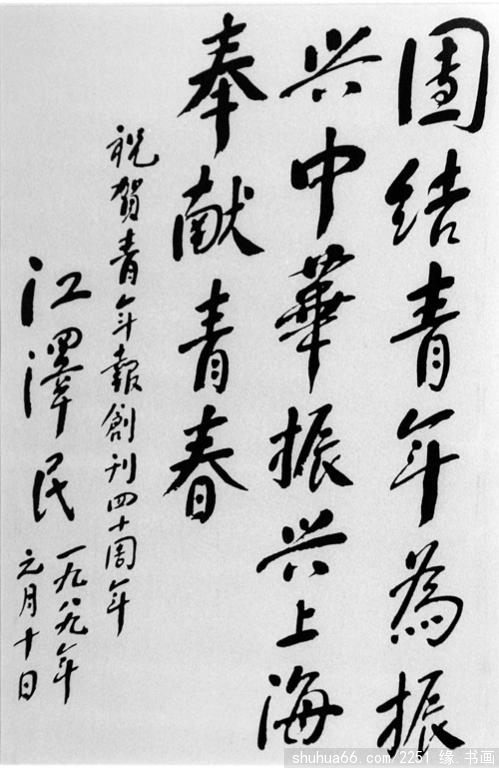 團结青年為振
兴中華振兴上海
奉献青春
祝賀青年報創刊四十周年
江澤民
一九八九年
元月十日
shuhua66.com 2251 缘.书画